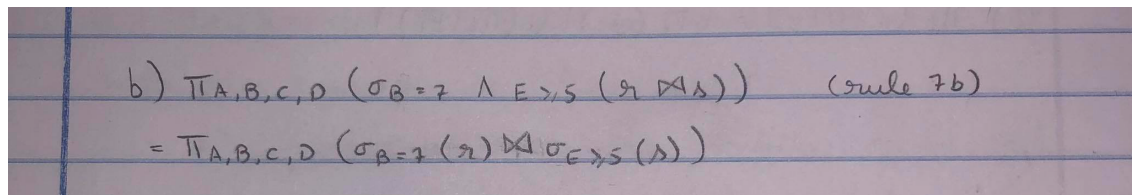 b) π A, B, C, D (σ B = 7 ∧ E ⩾ 5 (r ⋈ s)) (rule 7b)
= π A, B, C, D (σ B = 7 (r) ⋈ σ E ⩾ 5 (s))